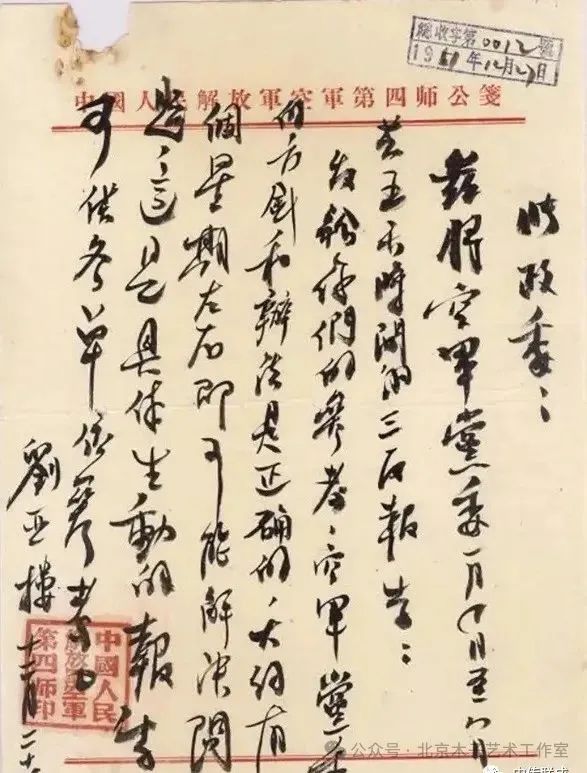 總收字第0012號
年12月27日
中國人民解放軍空軍第四师公箋
政委：
茲將空軍黨委一月日至八月
時間的三反報告：
发給你們的參考，空軍黨委
的方針和辦法是正确的，大約有
個星期左右即可能解決問
題，這是具体生動的報告
可供参
劉亚樓
十二月二十
中國人民
解放軍空軍
第四师印
公众号·北京木艺术工作室